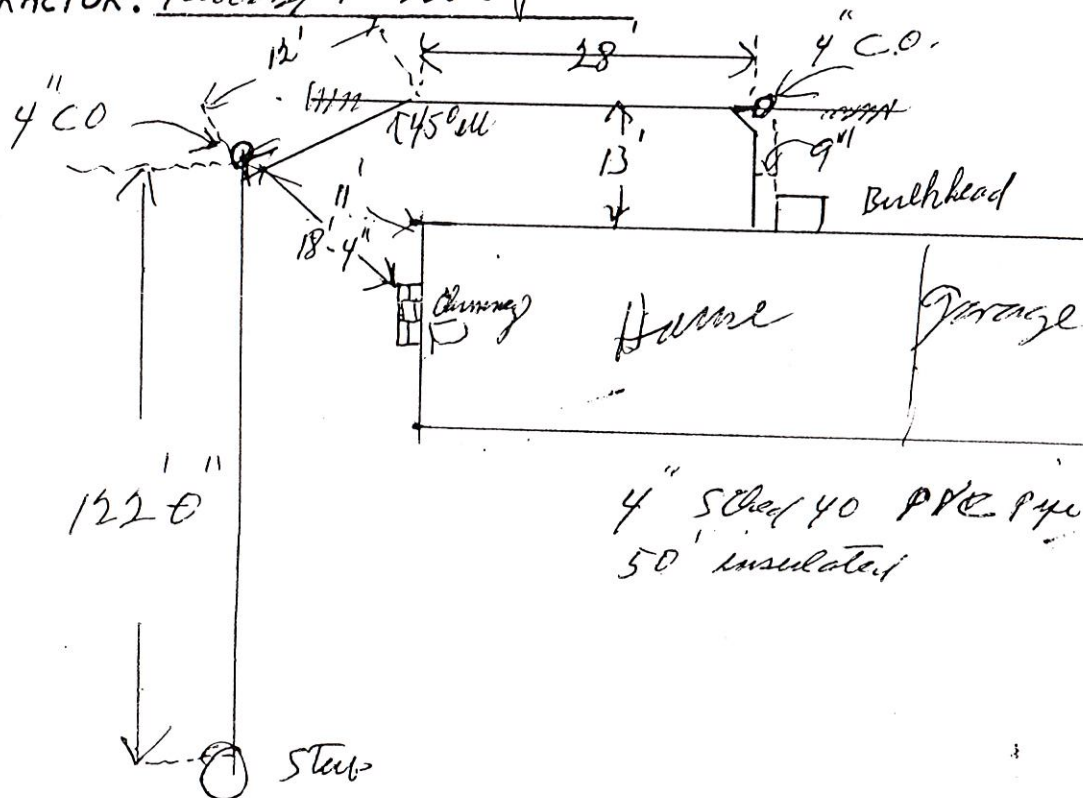 RACTOR:
28'
4" C.O.
12'
4" CO
45° ell
13'
9"
Bulkhead
11'
18'-4"
Chimney
House
Garage
122' 0"
4" Sched 40 PVC Pipe
50' insulated
Stub